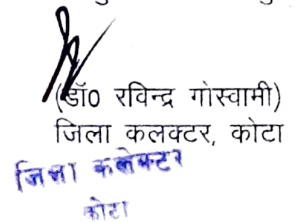 (डॉ0 रविन्द्र गोस्वामी)
जिला कलक्टर, कोटा
जिला कलेक्टर
कोटा